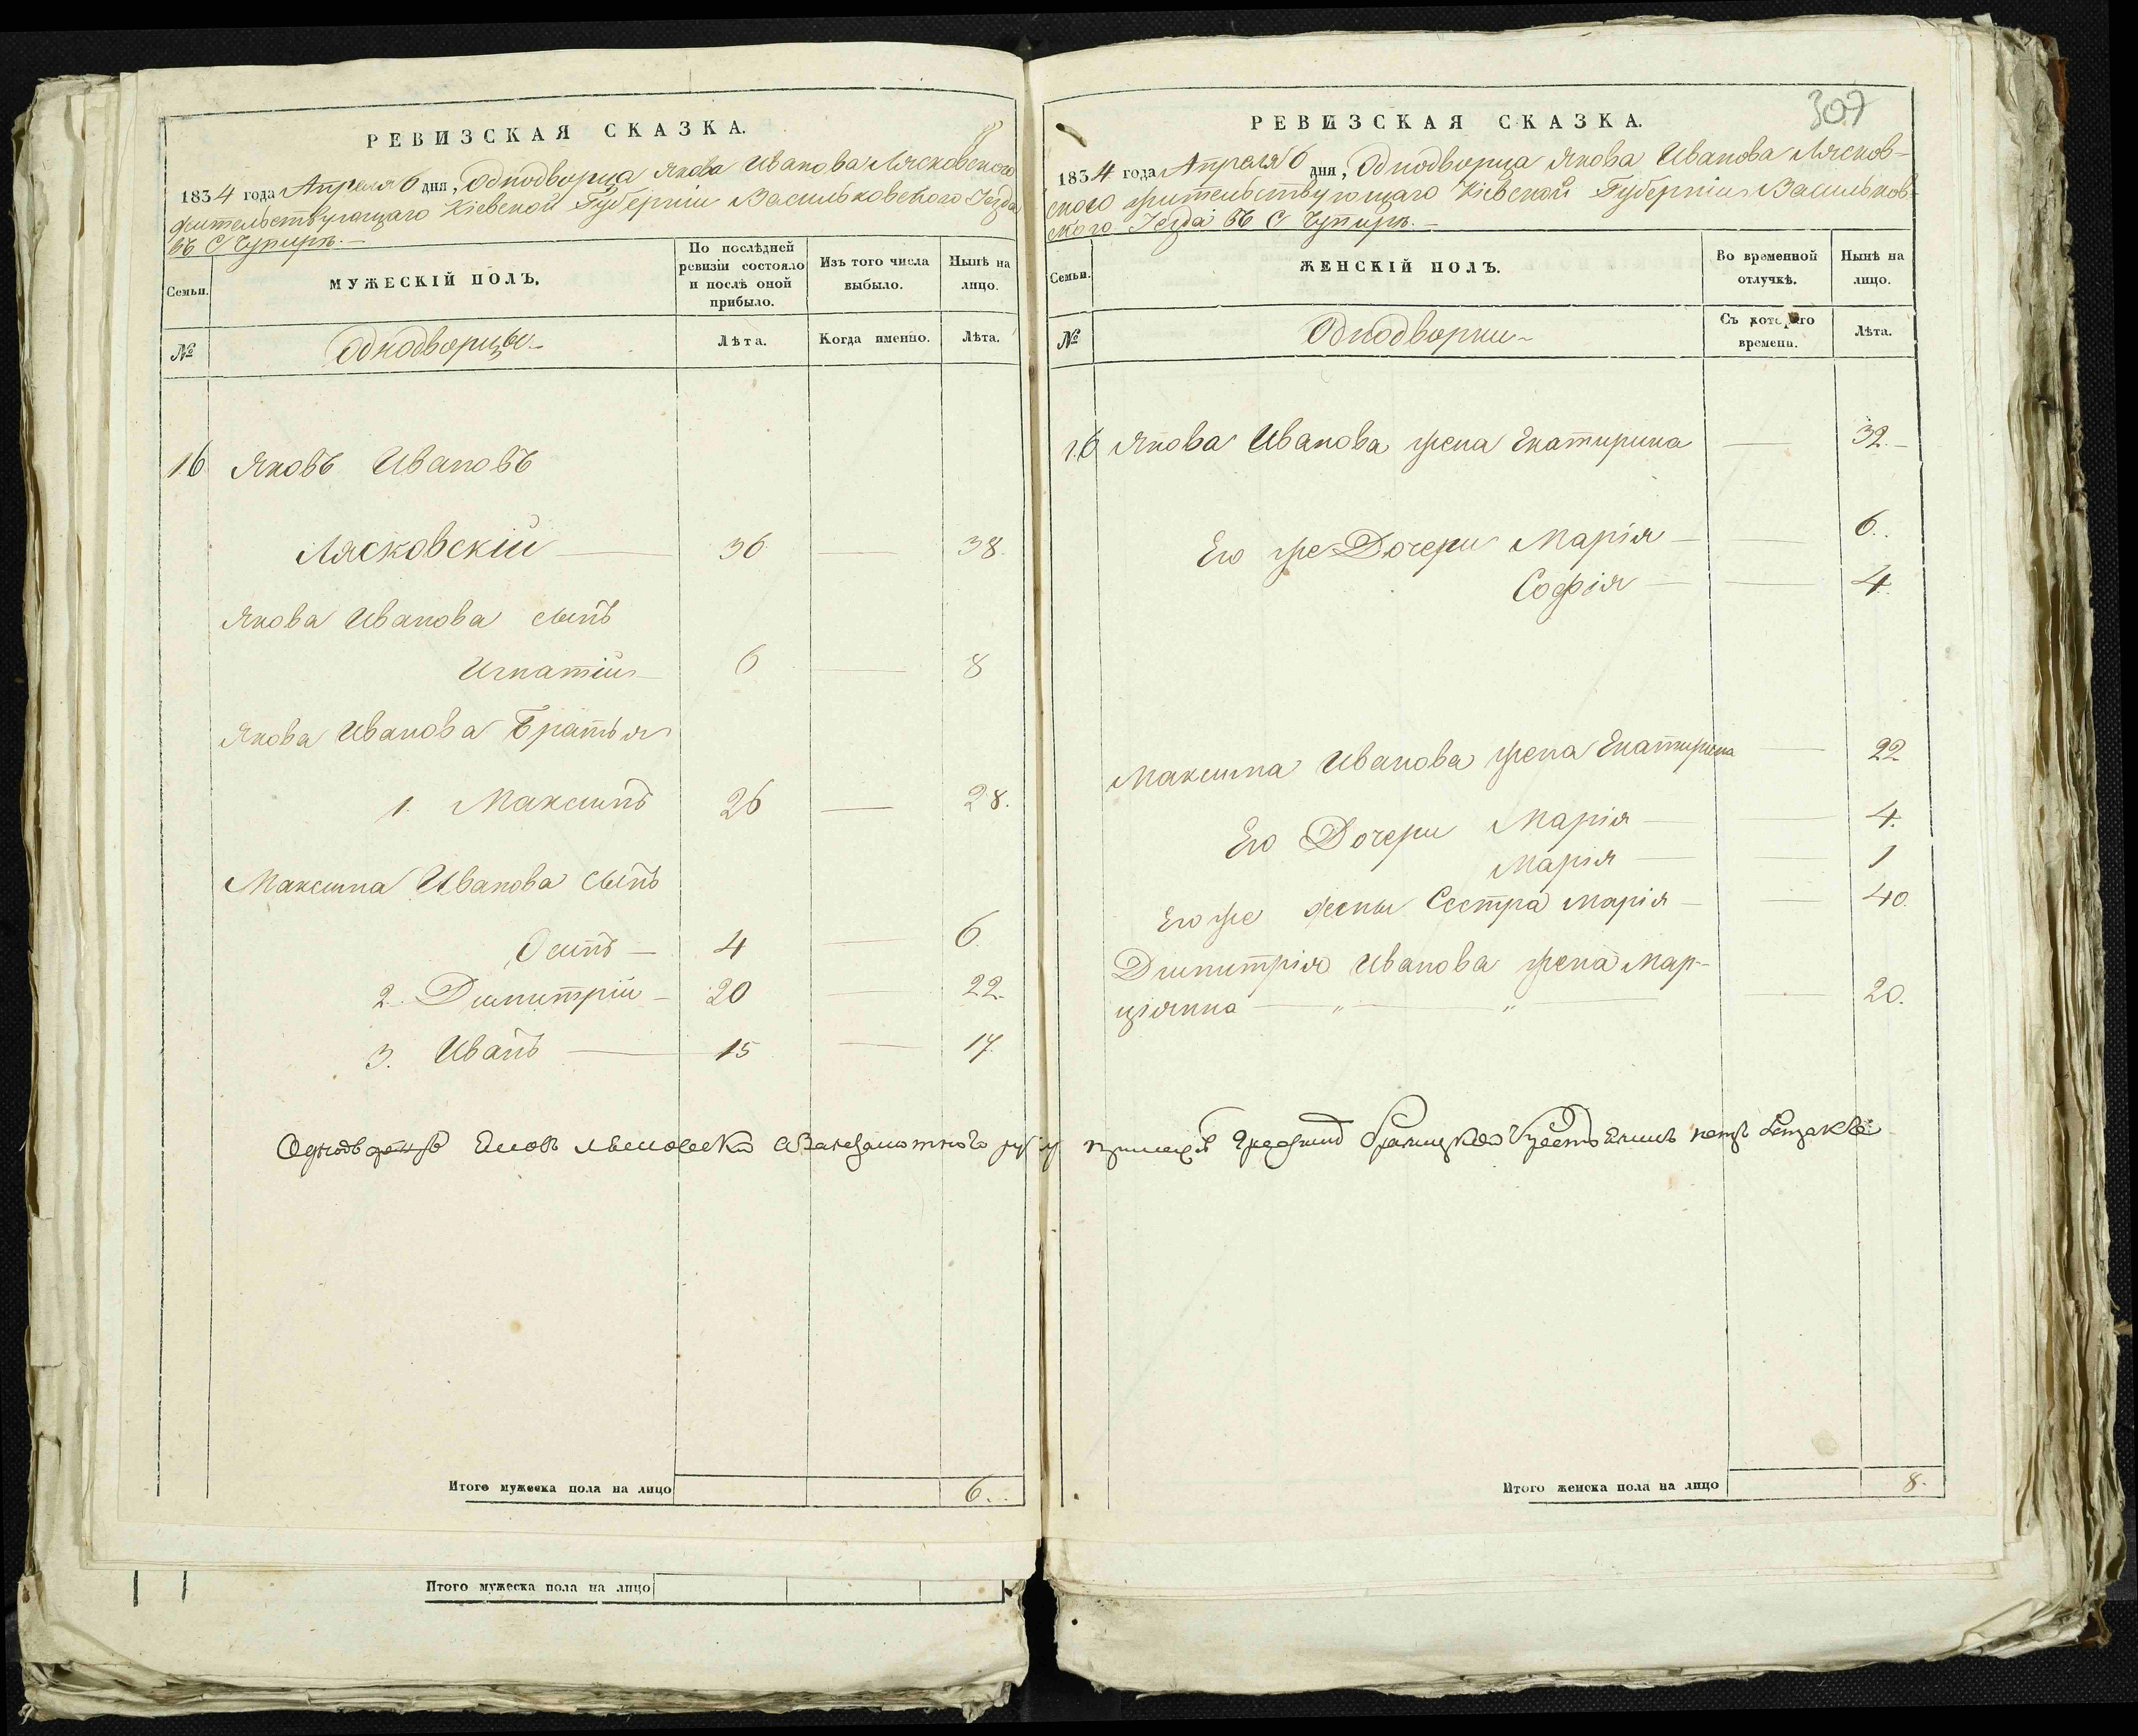 РЕВИЗСКАЯ СКАЗКА.
1834 года Апреля 6 дня, Однодворца Якова Иванова Лясковского
жительствующаго Кіевской Губерніи Васильковского Уезда
въ С
Семьи.
МУЖЕСКІЙ ПОЛЪ.
По послѣдней ревизіи состояло и послѣ оной прибыло.
Изъ того числа выбыло.
Нынѣ на лицо.
№
Однодворцы
Лѣта.
Когда именно.
Лѣта.
16 Яковъ Ивановъ
Лясковскій 36 38.
Якова Иванова сынъ
Игнатій 6 8
Якова Иванова Братья
1. Максимъ 26 28.
Максима Иванова сынъ
Осипъ 4 6.
2. Димитрій 20 22.
3. Иванъ 15 17.
Итого мужеска пола на лицо 6.
Итого мужеска пола на лицо
307
РЕВИЗСКАЯ СКАЗКА.
1834 года Апреля 6 дня, Однодворца Якова Иванова Лясков-
ского жительствующаго Кіевской Губерніи Васильков-
ского Уезда въ С
Семьи.
ЖЕНСКІЙ ПОЛЪ.
Во временной отлучкѣ.
Нынѣ на лицо.
№
Однодворки
Съ котораго времени.
Лѣта.
16 Якова Иванова жена Екатирина 32.
Его же Дочери Марія 6.
Софія 4.
Максима Иванова жена Екатирина 22
Его Дочери Марія 4.
Марія 1
Его же жены Сестра Марія 40.
Димитрія Иванова жена Мар-
ціянна 20.
Итого женска пола на лицо 8.